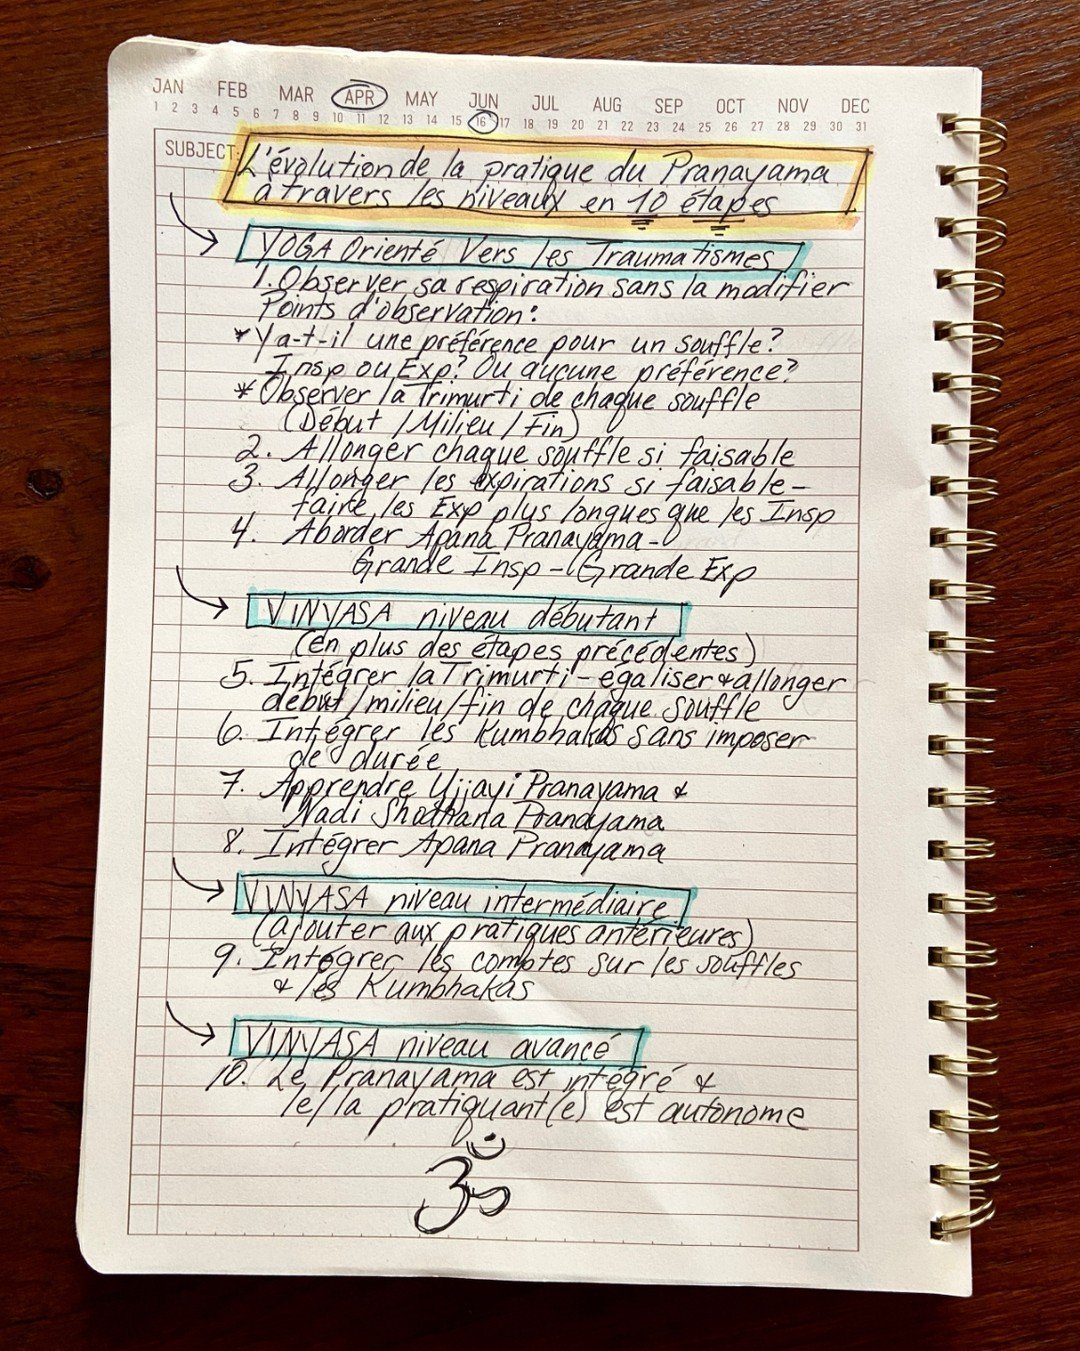 JAN FEB MAR APR MAY JUN JUL AUG SEP OCT NOV DEC
1 2 3 4 5 6 7 8 9 10 11 12 13 14 15 16 17 18 19 20 21 22 23 24 25 26 27 28 29 30 31
SUBJECT:
L'évolution de la pratique du Pranayama
à travers les niveaux en 10 étapes
YOGA Orienté Vers les Traumatismes
1. Observer sa respiration sans la modifier
Points d'observation:
* Y a-t-il une préférence pour un souffle?
Insp ou Exp? Ou aucune préférence?
* Observer la Trimurti de chaque souffle
(Début / Milieu / Fin)
2. Allonger chaque souffle si faisable
3. Allonger les expirations si faisable -
faire les Exp plus longues que les Insp
4. Aborder Apana Pranayama -
Grande Insp - Grande Exp
VINYASA niveau débutant
(en plus des étapes précédentes)
5. Intégrer la Trimurti - égaliser & allonger
début/milieu/fin de chaque souffle
6. Intégrer les Kumbhakas sans imposer
de durée
7. Apprendre Ujjayi Pranayama &
Nadi Shodhana Pranayama
8. Intégrer Apana Pranayama
VINYASA niveau intermédiaire
(ajouter aux pratiques antérieures)
9. Intégrer les comptes sur les souffles
& les Kumbhakas
VINYASA niveau avancé
10. Le Pranayama est intégré &
le/la pratiquant(e) est autonome
ॐ